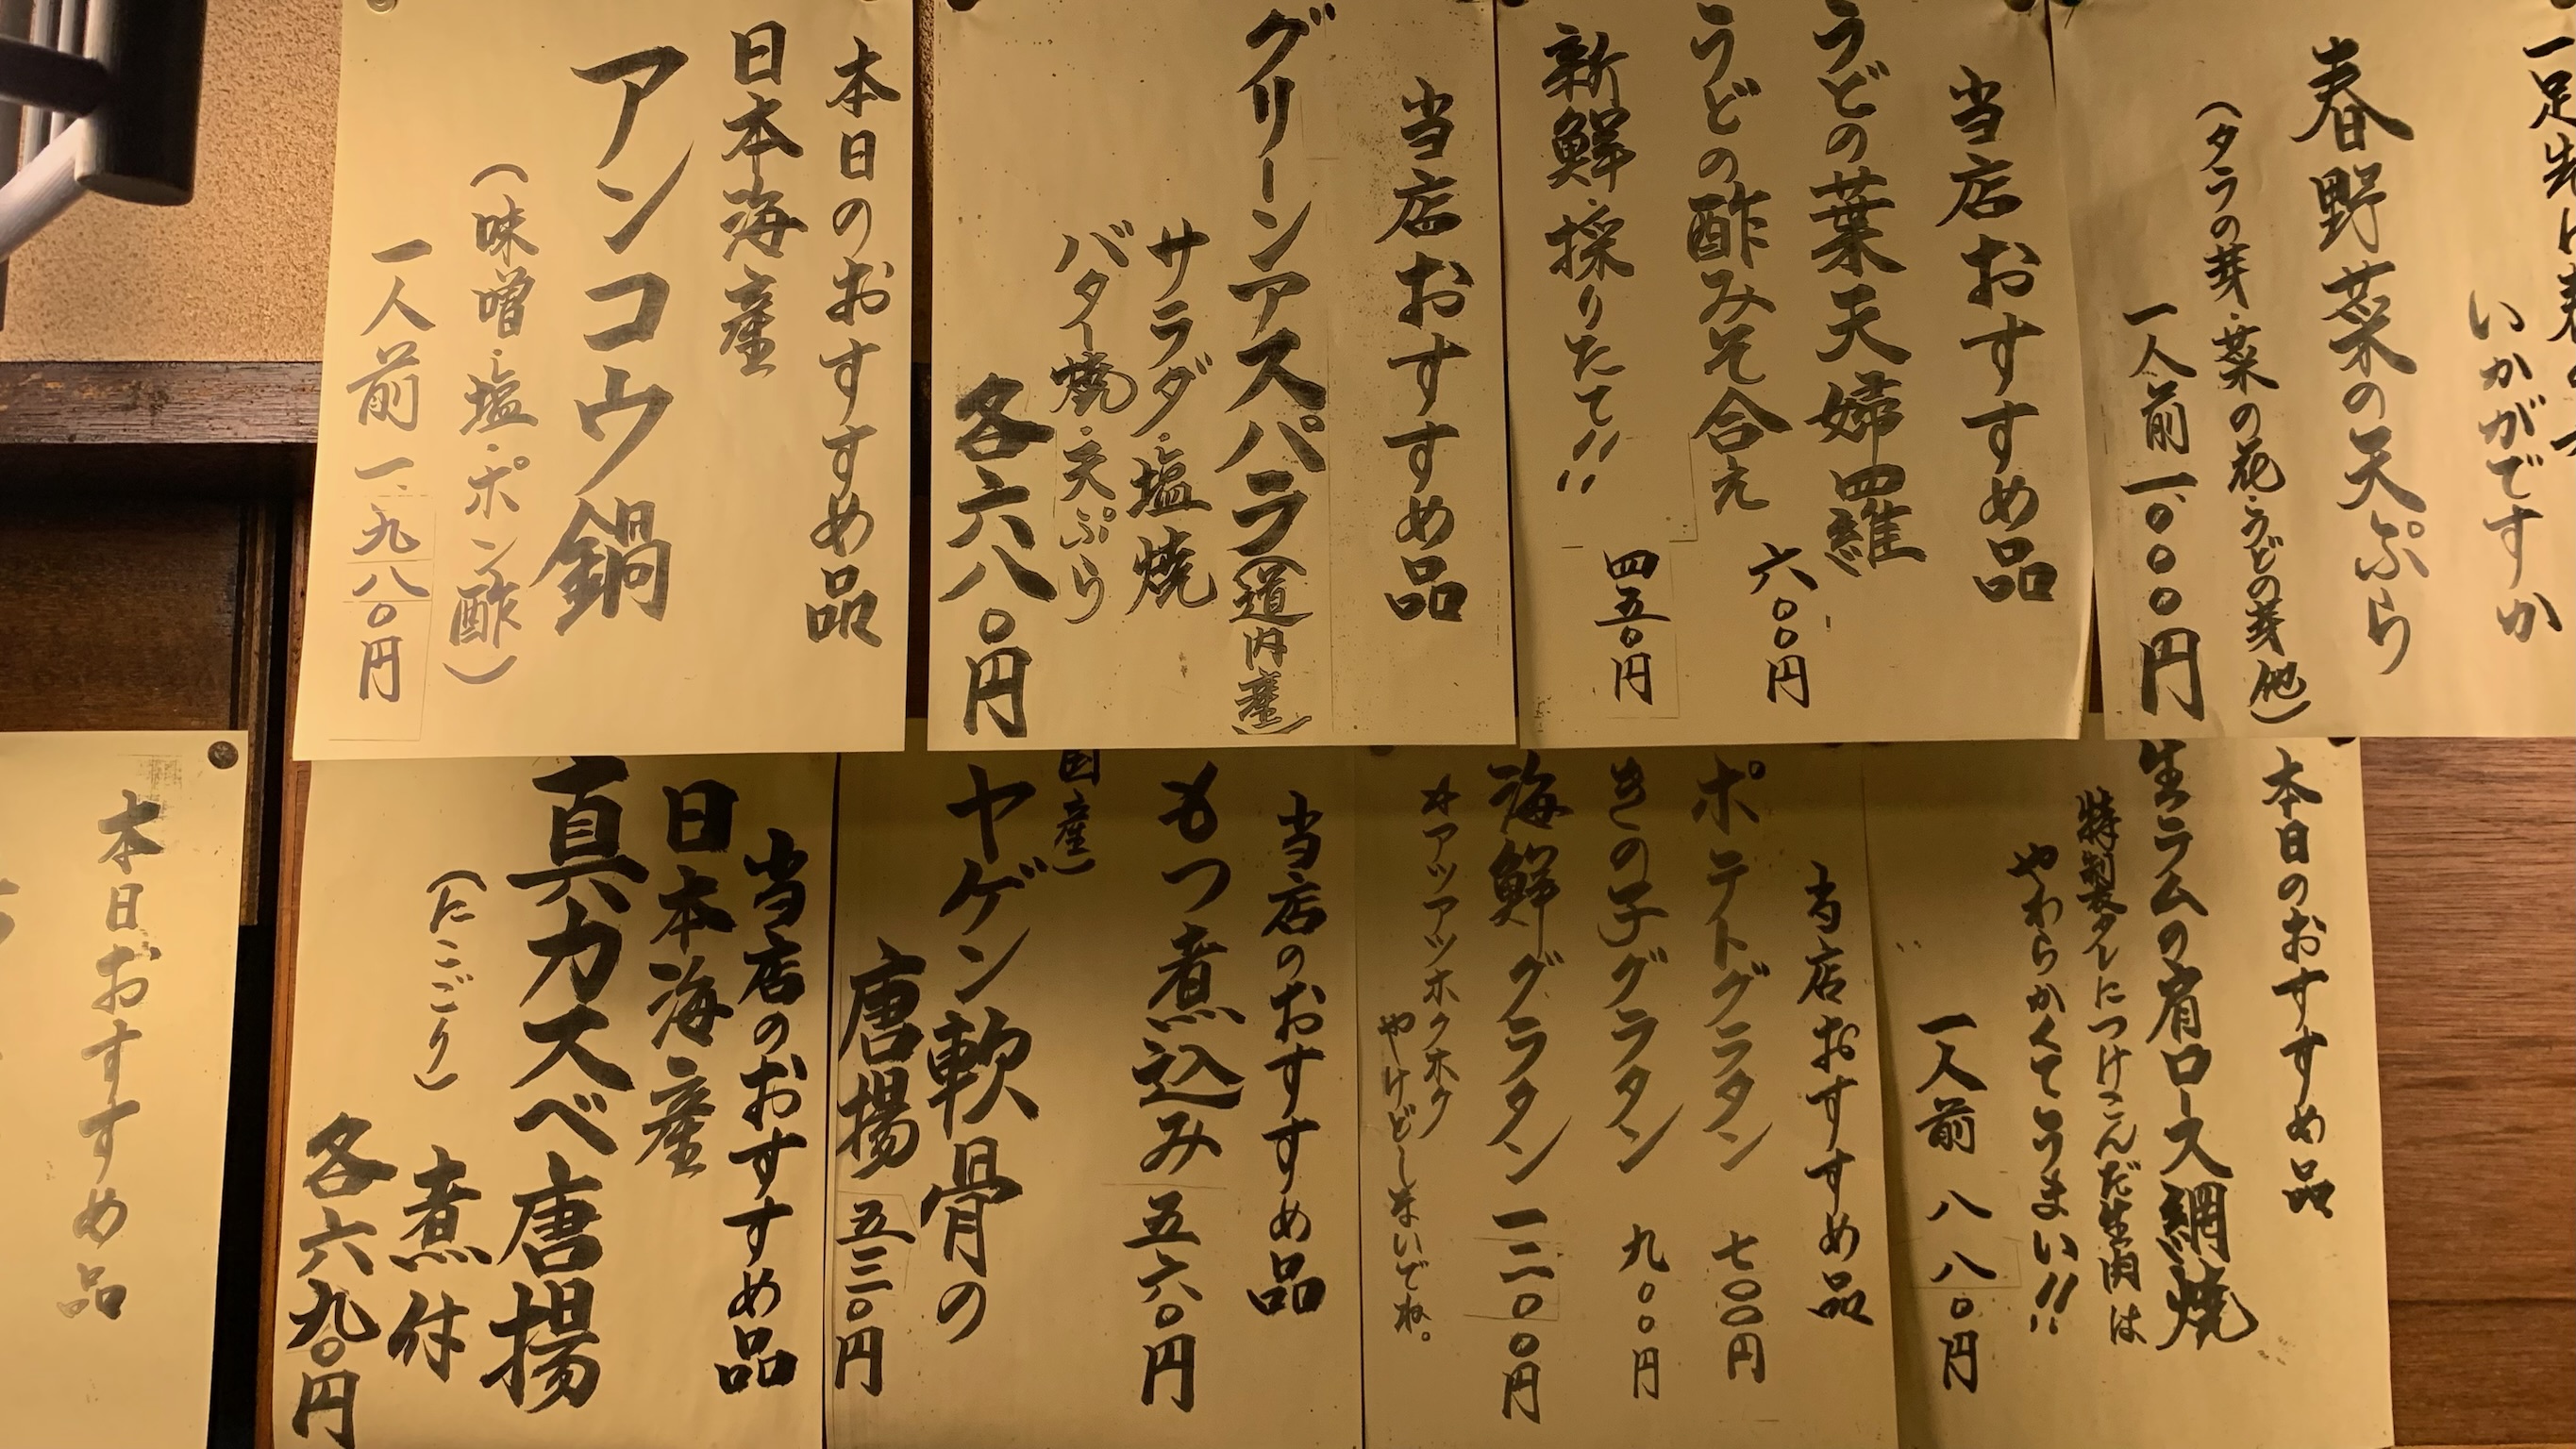 いかがですか
春野菜の天ぷら
(タラの芽・菜の花・うどの芽他)
一人前 一、〇〇〇円
当店おすすめ品
うどの葉天婦羅
六〇〇円
うどの酢みそ合え
四五〇円
新鮮採りたて!!
当店おすすめ品
グリーンアスパラ(道内産)
サラダ・塩焼
バター焼・天ぷら
各六八〇円
本日のおすすめ品
日本海産
アンコウ鍋
(味噌・塩・ポン酢)
一人前 一、九八〇円
本日のおすすめ品
生ラムの肩ロース網焼
特製タレにつけこんだ生肉は
やわらかくてうまい!!
一人前 八八〇円
当店おすすめ品
ポテトグラタン 七〇〇円
きの子グラタン 九〇〇円
海鮮グラタン 一二〇〇円
アツアツホクホク
やけどしないでね。
当店のおすすめ品
もつ煮込み 五六〇円
国産)
ヤゲン軟骨の
唐揚 五三〇円
当店のおすすめ品
日本海産
真カスベ唐揚
(にこごり) 煮付
各六九〇円
本日おすすめ品